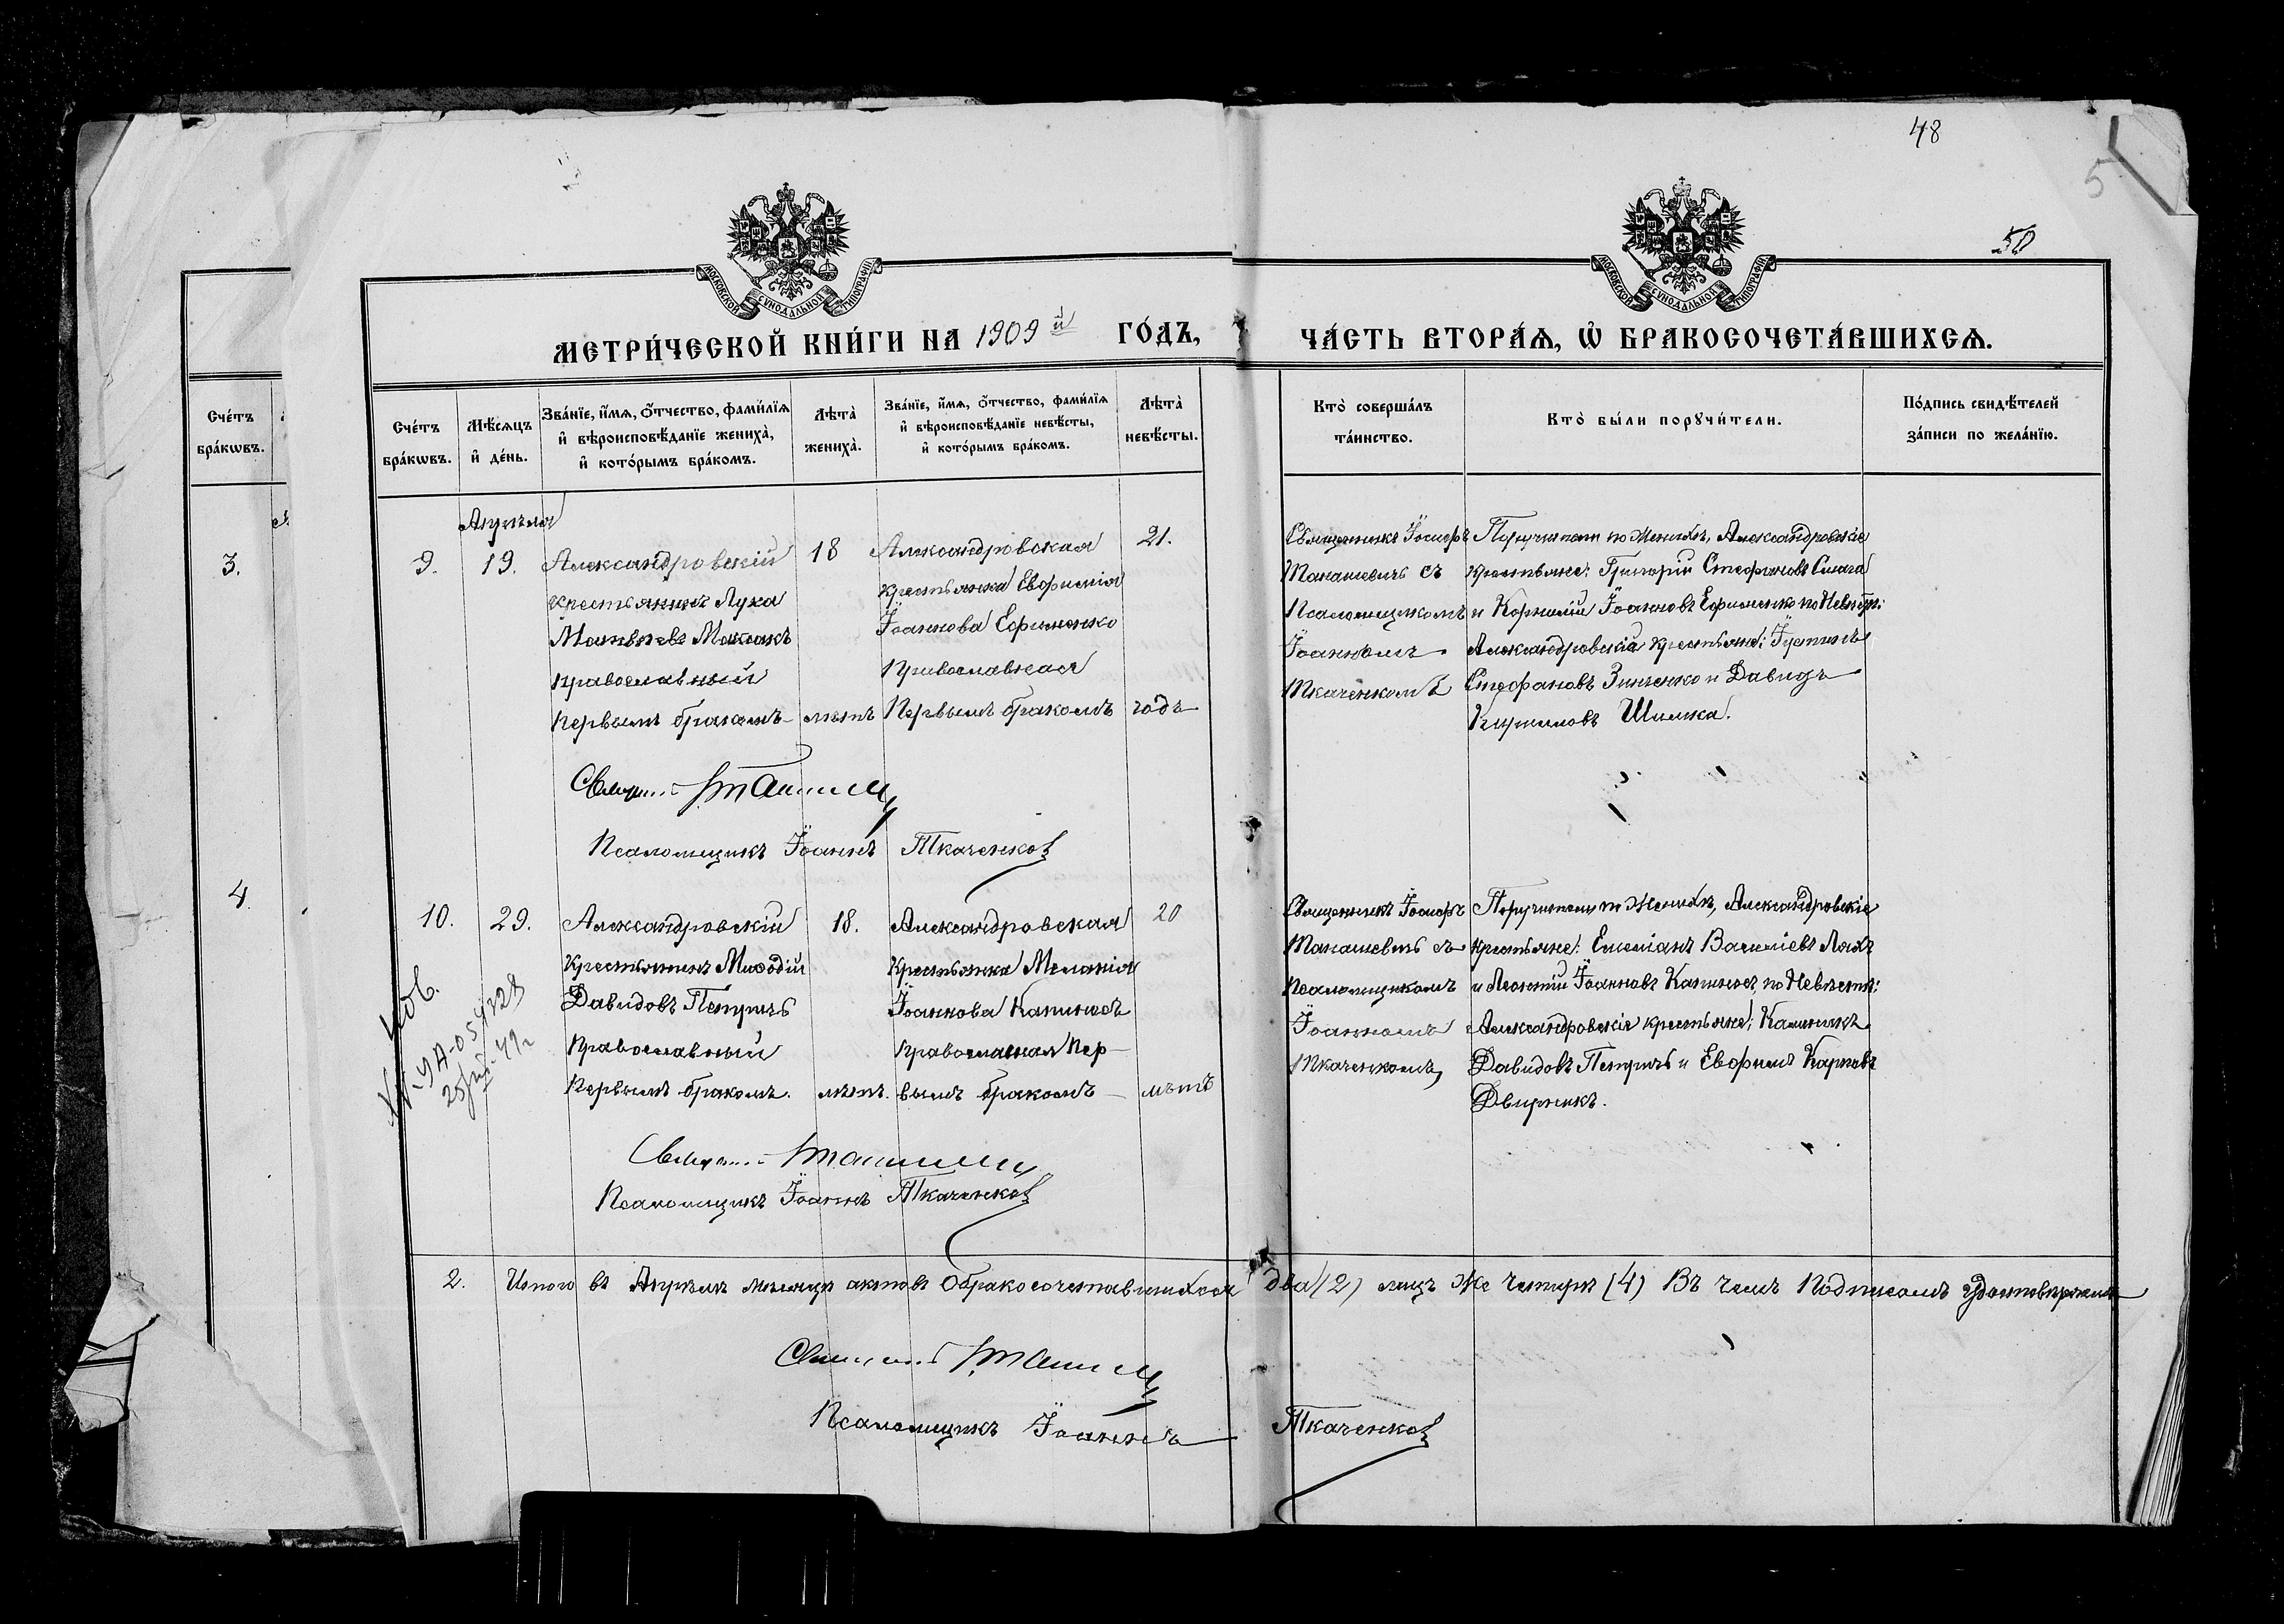 48
5
50
МОСКОВСКОЙ СѴНОДАЛЬНОЙ ТИПОГРАФІИ
МОСКОВСКОЙ СѴНОДАЛЬНОЙ ТИПОГРАФІИ
МЕТРИ́ЧЕСКОЙ КНИ́ГИ НА 1909й ГО́ДЪ, ЧА́СТЬ ВТОРА́Ѧ, Ѡ҆ БРАКОСОЧЕТА́ВШИХСѦ.
Сче́тъ
бра́кѡвъ.
Сче́тъ
бра́кѡвъ.
Мѣ́сѧцъ
и҆ де́нь.
Зва́нїе, и҆́мѧ, ѻ҆́тчество, фами́лїѧ
и҆ вѣроисповѣ́данїе жениха̀,
и҆ кото́рымъ бра́комъ.
Лѣта̀
жениха̀.
Зва́нїе, и҆́мѧ, ѻ҆́тчество, фами́лїѧ
и҆ вѣроисповѣ́данїе невѣ́сты,
и҆ кото́рымъ бра́комъ.
Лѣта̀
невѣ́сты.
Кто̀ соверша́лъ
та́инство.
Кто̀ бы́ли порꙋчи́тели.
По́дпись свидѣ́телей
за́писи по жела́нїю.
3.
4.
Апрѣля
9.
19.
Александровскій
крестьянинъ Лука
Матвѣевъ
православный
первымъ бракомъ
18
лѣтъ
Александровская
крестьянка Евфимія
Іоаннова Ефименко
православная
первымъ бракомъ
21.
годъ
Священникъ Іосифъ
Манашевичъ съ
псаломщикомъ
Іоанномъ
Ткаченкомъ
Поручители по женихѣ, Александровскіе
крестьяне: Григорій Стефановъ
и Корнилій Іоанновъ Ефименко по Невѣстѣ:
Александровскіе крестьяне: Іустинъ
Стефановъ Зинченко и Давидъ
Кирилловъ Шилка.
Псаломщикъ Іоаннъ Ткаченко
10.
29.
Александровскій
крестьянинъ Миѳодій
Давидовъ Петричъ
православный
первымъ бракомъ.
18.
лѣтъ.
Александровская
крестьянка Меланія
Іоаннова Капиносъ
православная пер-
вымъ бракомъ
20
лѣтъ
Священникъ Іосифъ
Манашевичъ съ
псаломщикомъ
Іоанномъ
Ткаченкомъ,
Поручители по женихѣ, Александровскіе
крестьяне: Емеліанъ Василіевъ Ляхъ
и Леонтій Іоанновъ Капиносъ, по Невѣстѣ:
Александровскіе крестьяне: Каленикъ
Давидовъ Петричъ и Евфимъ Карповъ
Двирникъ.
Псаломщикъ Іоаннъ Ткаченко
2. Итого въ Апрѣлѣ мѣсяцѣ актовъ о бракосочетавшихся два (2) лицъ же четыре (4) Въ чемъ подписомъ удостовѣряемъ
Псаломщикъ Іоаннъ Ткаченко